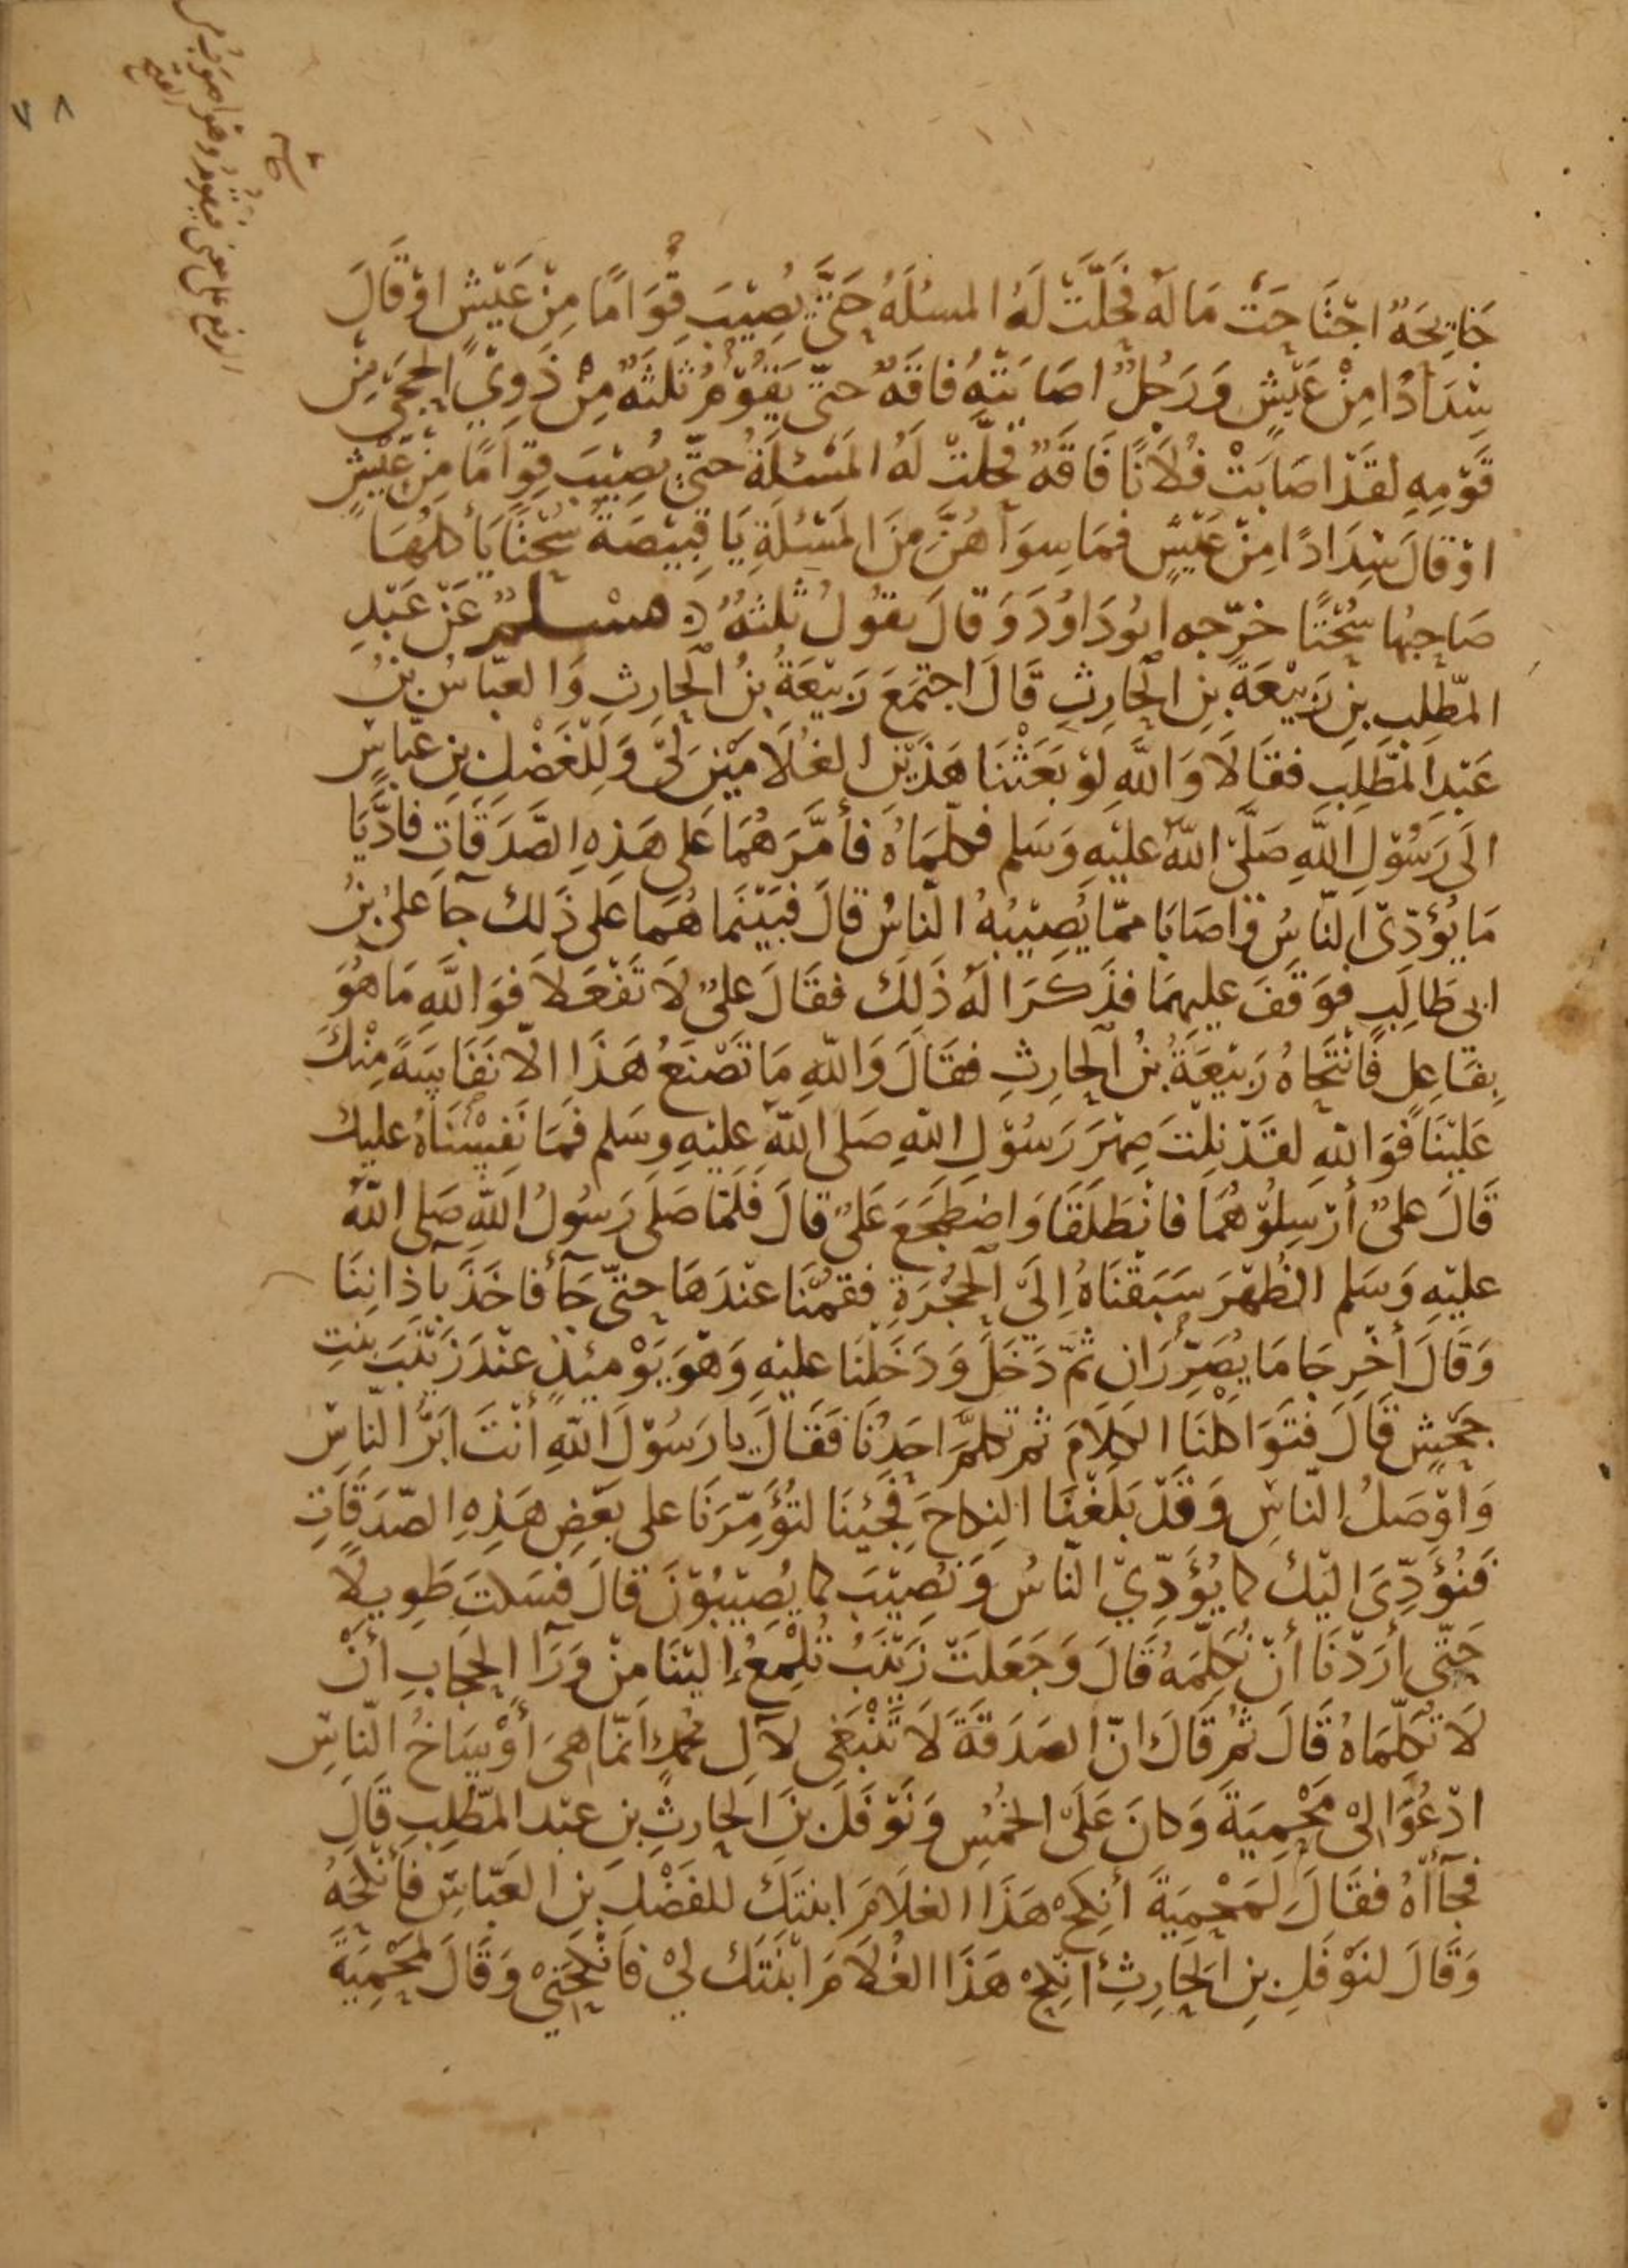 ٧٨
جَايِحَةٌ اجْتَاحَتْ مَالَهُ فَحَلَّتْ لَهُ المسئلَةُ حَتَّى يُصِيْبَ قِوَامًا مِنْ عَيْشٍ اوْ قَالَ
سِدَادًا مِنْ عَيْشٍ وَرَجُلٌ اصَابَتْهُ فَاقَةٌ حتّى يَقُوْمُ ثَلثَةٌ مِنْ ذَوِي الحِجَى مِنْ
قَوْمِهِ لقَدْ اصَابَتْ فُلَانًا فَاقَةٌ فحَلَّتْ لَهُ المَسْئلَةُ حتّى يُصِيْبَ قِوَامًا مِنْ عَيْشٍ
اوْ قَالَ سِدَادًا مِنْ عَيْشٍ فمَا سِوَاهُنَّ مِنَ المَسْئلَةِ يَا قَبِيْصَةُ سُحْتًا يَأكلُهَا
صَاحِبُها سُحْتًا خرّجه ابُودَاوُدَ وَقالَ يقوُلُ ثلثةٌ مسْلمٌ عَنْ عَبْدِ
المطّلِبِ بنِ رَبِيْعَةَ بنِ الحَارِثِ قَالَ اجتمَعَ رَبِيْعَةُ بنُ الحارِثِ وَالعبّاسُ بنُ
عَبْدِ المطّلِبِ فقَالَا وَاللَّهِ لوْ بَعَثْنَا هَذَيْنِ الغُلَامَيْنِ لِي وَلِلْفَضْلِ بنِ عبّاسٍ
الَى رَسُوْلِ اللّهِ صَلّى اللّهُ عليْهِ وَسَلم فكلّمَاهُ فأمَّرَهُمَا عَلى هَذِهِ الصَّدَقَاتِ فادَّيَا
مَا يُؤَدّى النّاسُ وَاصَابَا ممّا يُصِيْبُهُ النّاسُ قالَ فبَيْنَما هُمَا عَلى ذَلك جآ علىُ بنُ
ابى طَالِبٍ فوَقَفَ عليهمَا فذَكَرَا لَهُ ذَلِكَ فقَالَ علىٌ لَا تَفْعَلَا فوَاللَّهِ مَا هُوَ
بِفَاعِلٍ فَانْتَحَاهُ رَبِيْعَةُ بنُ الحارِثِ فقَالَ وَاللّهِ مَا تَصْنَعُ هَذَا الّا نَفَاسَةً مِنْكَ
عَلَيْنَا فَوَاللّهِ لقَدْ نِلْتَ صِهْرَ رَسُوْلِ اللّهِ صَلى اللّهُ عليْهِ وسَلم فَمَا نَفِسْنَاهُ عليك
قَالَ علىٌ أرْسِلُوْهُمَا فانْطَلَقَا وَاضطَجَعَ عَلىٌ قالَ فَلَمّا صَلَى رَسُولُ اللّهِ صَلى اللّهُ
عليْهِ وَسَلم الظُهْرَ سَبَقْنَاهُ إِلَى الحُجْرَةِ فقمْنَا عنْدَهَا حتّى جَآ فاخَذَ بآذَانِنَا
وَقَالَ أخْرِجَا مَا تُصَرِّرَانِ ثمّ دَخَلَ وَدَخَلنَا عليْهِ وَهُوَ يَوْمئِذٍ عنْدَ زَيْنَبَ بنتِ
جَحْشٍ قَالَ فتَوَاكلْنَا الكلَامَ ثمّ تكلمَّ احَدُنَا فقَالَ يا رَسُوْلَ اللّهِ أنْتَ ابَرُّ النّاسِ
وَاوْصَلُ النّاسِ وَقَدْ بَلَغْنَا النِكاحَ فَجِئنَا لتُؤَمِّرَنَا على بَعْضِ هَذِهِ الصّدَقَاتِ
فَنُؤَدِّىَ اليْكَ كما يُؤَدِّيْ النّاسُ وَنصِيْبَ كما يُصِيْبُوْنَ قالَ فسَكتَ طَوِيلًا
حَتّى أرَدْنَا أنْ نُكلّمَهُ قَالَ وَجَعَلَتْ زَيْنَبُ تُلْمِعُ إليْنَا مِنْ وَرَآ الحِجَابِ أنْ
لَا تُكلّمَاهُ قَالَ ثُمّ قَالَ انّ الصَدَقَةَ لَا تَنْبَغى لآلِ محمّدٍ انمّا هىَ أوْسَاخُ النّاسِ
ادْعُوَا لىْ مَحْمِيَةَ وَكانَ عَلَى الخُمُسِ وَنَوْفَلَ بنَ الحارِثِ بنِ عبْد المطّلِبِ قَالَ
فجآأهُ فقَالَ لِمَحْمِيَةَ أنكِحْ هَذَا الغلَامَ ابنتَكَ للفَضْلِ بنِ العَبّاسِ فأنْكَحَهُ
وَقَالَ لنَوْفَلِ بنِ الحَارِثِ أنْكِحْ هَذَا الغُلَامَ ابْنَتَك لِيْ فَانْكَحَنِيْ وَقَالَ لمَحْمِيَةَ